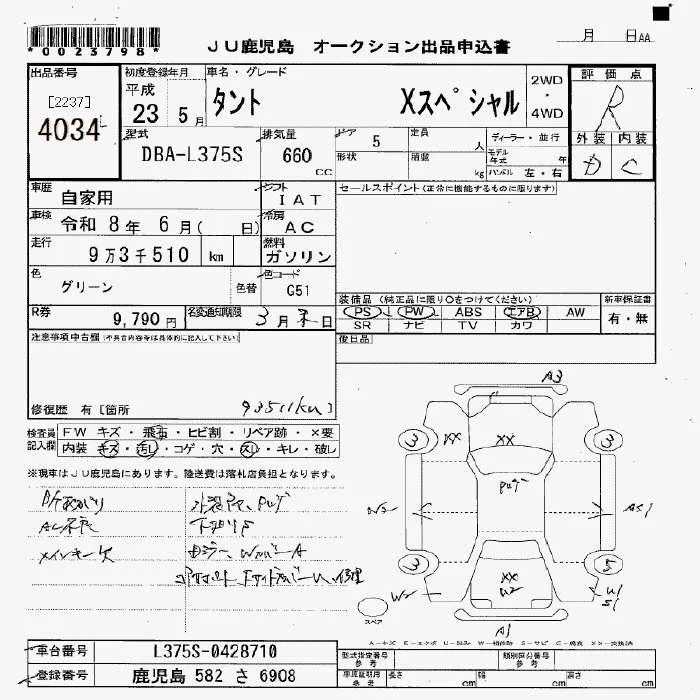 *0023798*
JU鹿児島 オークション出品申込書
月 日AA
出品番号
[2237]
4034
初度登録年月
平成
23 5月
車名・グレード
タント Xスペシャル
2WD
・
4WD
評価点
R
外装 内装
D C
型式
DBA-L375S
排気量
660
CC
ドア 5
定員 人
ディーラー・並行
形状
積載 kg
モデル年式 年
ハンドル 左・右
車歴
自家用
シフト
IAT
セールスポイント(正常に機能するものに限ります)
車検
令和 8年 6月( 日)
冷房
AC
走行
9万3千510 km
燃料
ガソリン
色
グリーン
色替
色コード
G51
装備品(純正品に限り○をつけてください)
新車保証書
PS PW ABS エアB AW
有・無
SR ナビ TV カワ
R券
9,790円
名変通知期限
3月末日
後日品
注意事項申告欄(不具合内容等は具体的に記入して下さい)
修復歴 有[箇所
93511km]
検査員
記入欄
FW キズ・飛石・ヒビ割・リペア跡・×要
内装 キズ・汚レ・コゲ・穴・スレ・キレ・破レ
※現車はJU鹿児島にあります。陸送費は落札店負担となります。
AC不良
メインキー欠
下廻りS
A3
3 XX XX 3
W2
XX
W2
3
A1
スペア
A-キズ
車台番号
L375S-0428710
登録番号
鹿児島 582 さ 6908
型式指定番号
参考
類別区分番号
参考
車庫証明用
参考
長さ cm
幅 cm
高さ cm